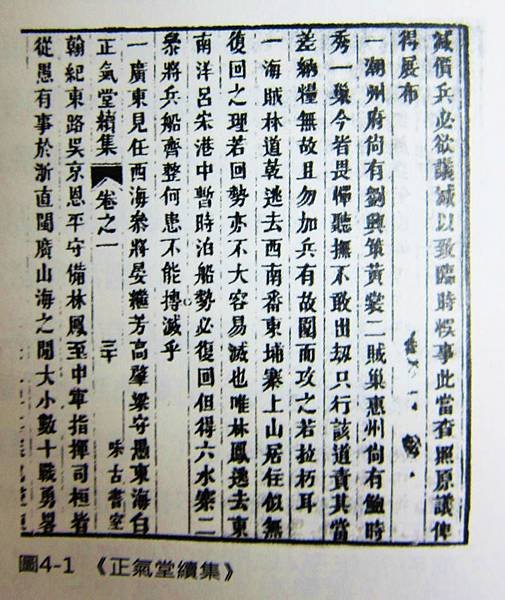 減價兵必欲議減以致臨時悞事此當查照原議俾
得展布
一潮州府尙有劉興策黃裳二賊巢惠州尙有鮑時
秀一巢今皆畏憚聽撫不敢出刧只行該道責其當
差納糧無故且勿加兵有故圍而攻之若拉朽耳
一海賊林道乾逃去西南番東埔寨上山居住似無
復回之理若回勢亦不大容易滅也唯林鳳逃去東
南洋呂宋港中暫時泊船勢必復回但得六水寨二
叅將兵船齊整何患不能摶滅乎
一廣東見任西海叅將晏繼芳高肇梁守愚東海白
正氣堂續集
卷之一
三十
味古書室
翰紀東路吳京恩平守備林鳳至中軍指揮司桓皆
從愚有事於浙直閩廣山海之間大小數十戰勇畧
圖4-1 《正氣堂續集》